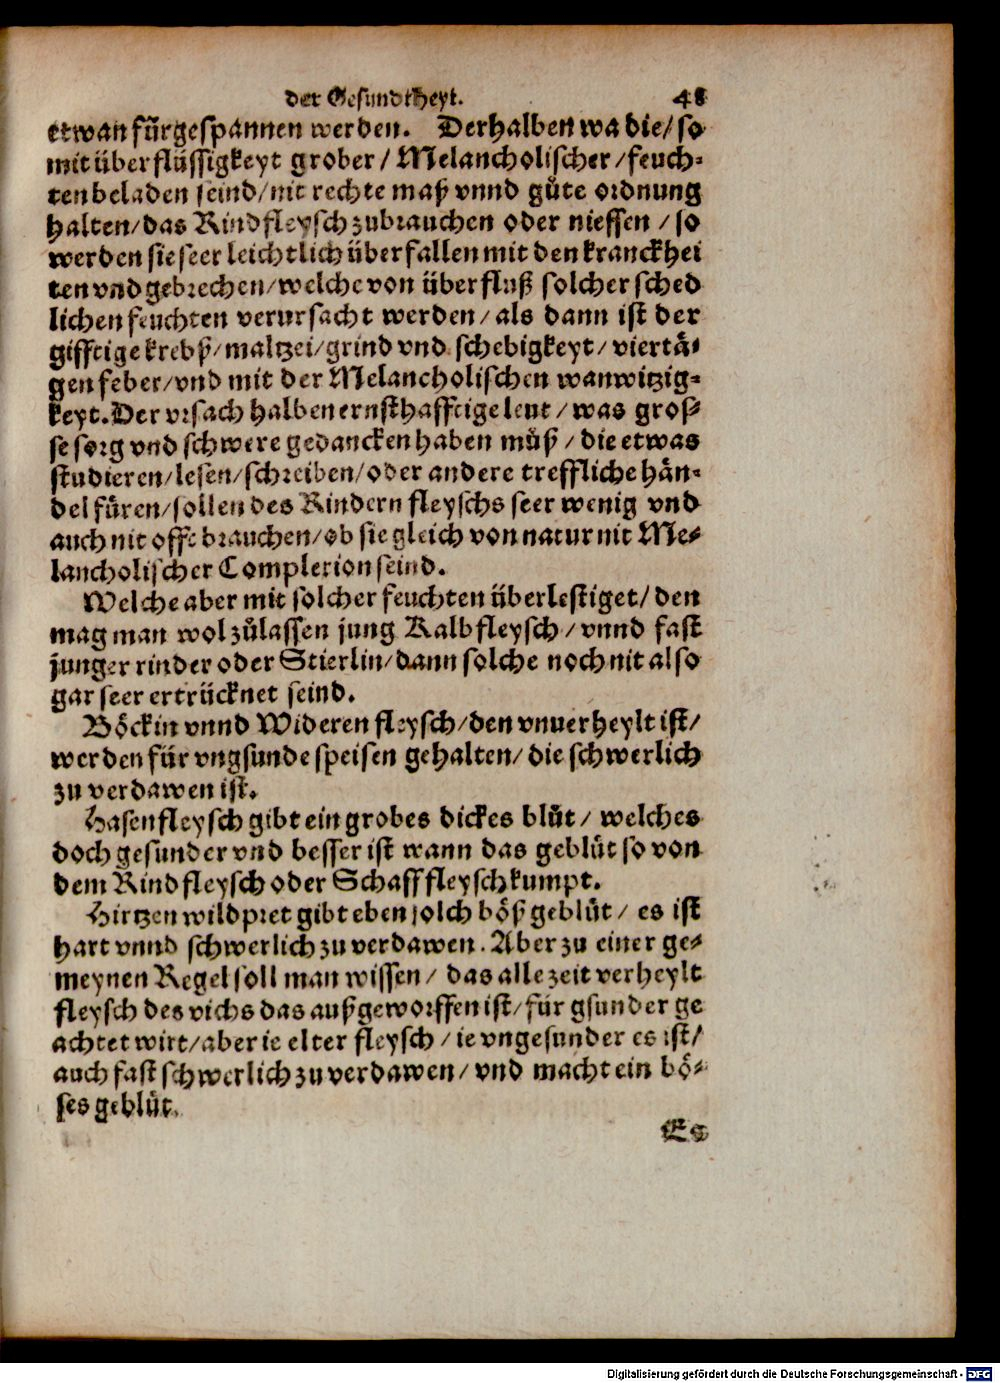 der Gesundtheyt. 48
etwan fürgespannen werden. Derhalben wa die/ so
mit überflüssigkeyt grober / Melancholischer / feuch-
ten beladen seind/ nit rechte maß vnnd gůte ordnung
halten/ das Rindfleysch zubrauchen oder niessen / so
werden sie seer leichtlich überfallen mit den kranckhei
ten vnd gebrechen/ welche von überfluß solcher sched
lichen feuchten verursacht werden/ als dann ist der
gifftige krebß/ maltzei/ grind vnd schebigkeyt/ viertå-
gen feber/ vnd mit der Melancholischen wanwitzig-
keyt. Der vrsach halben ernsthafftige leut / was gros-
se sorg vnd schwere gedancken haben můß / die etwas
studieren/ lesen/ schreiben/ oder andere treffliche hån-
del fůren/ sollen des Rindern fleyschs seer wenig vnd
auch nit offt brauchen/ ob sie gleich von natur nit Me-
lancholischer Complexion seind.
Welche aber mit solcher feuchten überlestiget/ den
mag man wol zůlassen jung Kalbfleysch / vnnd fast
junger rinder oder Stierlin/ dann solche noch nit also
gar seer ertrücknet seind.
Böckin vnnd Wideren fleysch/ den vnuerheylt ist/
werden für vngsunde speisen gehalten/ die schwerlich
zu verdawen ist.
Hasenfleysch gibt ein grobes dickes blůt / welches
doch gesunder vnd besser ist wann das geblůt so von
dem Rindfleysch oder Schafffleysch kumpt.
Hirtzen wildpret gibt eben solch bößgeblůt / es ist
hart vnnd schwerlich zu verdawen. Aber zu einer ge-
meynen Regel soll man wissen / das alle zeit verheylt
fleysch des viehs das außgeworffen ist/ für gsunder ge
achtet wirt/ aber ie elter fleysch / ie vngesunder es ist/
auch fast schwerlich zu verdawen/ vnd macht ein bö-
ses geblůt.
Es
Digitalisierung gefördert durch die Deutsche Forschungsgemeinschaft - DFG